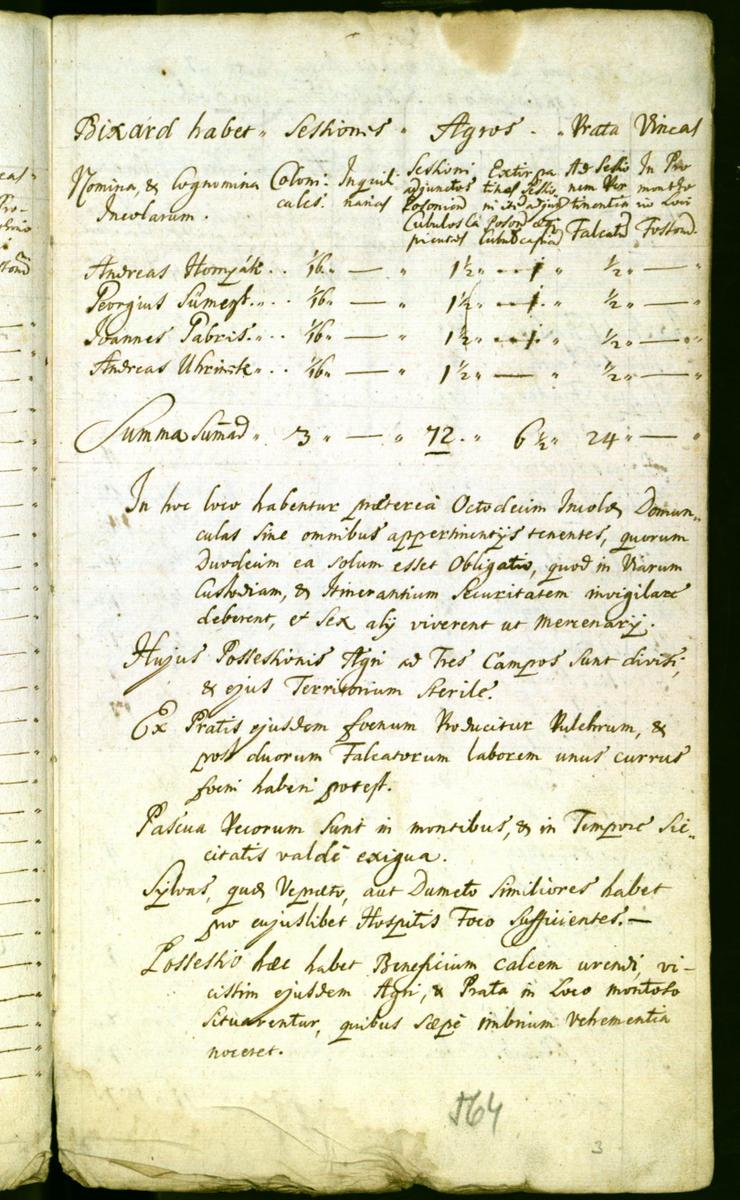 Bixárd habet „ Seſsiones „ Agros. „ Prata Vineas
Nomina, & Cognomina Incolarum.
Coloni-cales.
Inquili-narias
Seſsioni adjunctos Posonien Cubulos Ca pientes
Extirpa tines Seſsio ni
Ad Seſsio nem Per tinentia Falcat
In Pro montho rio Loci Foſsorū.
Andreas Homják. . 1/16 „ — „ 1 1/2 „ - - 1 „ 1/2 „ — „
Georgius Sümegh. „ . . 1/16 „ — „ 1 1/2 „ - - 1. „ 1/2 „ — „
Joannes Fabris. „ . . 1/16 „ — „ 1 1/2 „ - - 1. „ 1/2 „ — „
Andreas „ . . 1/16 „ — „ 1 1/2 „ — „ 1/2 „ — „
Summa Sumārū „ 3 „ — „ 72. „ 6 1/2 „ 24 „ — „
In hoc loco habentur præterea Octodecim Incolæ Domun„
culas sine omnibus appertinentijs tenentes, quorum
Duodecim ea solum esset Obligatio, quod in Viarum
Custodiam, & Itinerantium Securitatem invigilare
deberent, et Sex alij viverent ut Mercenarij.
Hujus Poſseſsionis Agri ad Tres Campos sunt divisi,
& ejus Territorium Sterile.
Ex Pratis ejusdem foenum Producitur Pulchrum, &
post duorum Falcatorum laborem unus currus
foeni haberi potest.
Pascua Pecorum sunt in montibus, & in Tempore Sic„
citatis valdè exigua.
Sylvas, quæ Vepreto, aut Dumeto Similiores habet
pro cujuslibet Hospitis Foco Sufficientes. —
Poſseſsio hæc habet Beneficium calcem urendi, vi-
ciſsim ejusdem Agri, & Prata in Loco montoso
Situarentur, quibus sæpè imbrium Vehementia
noceret.
564
3